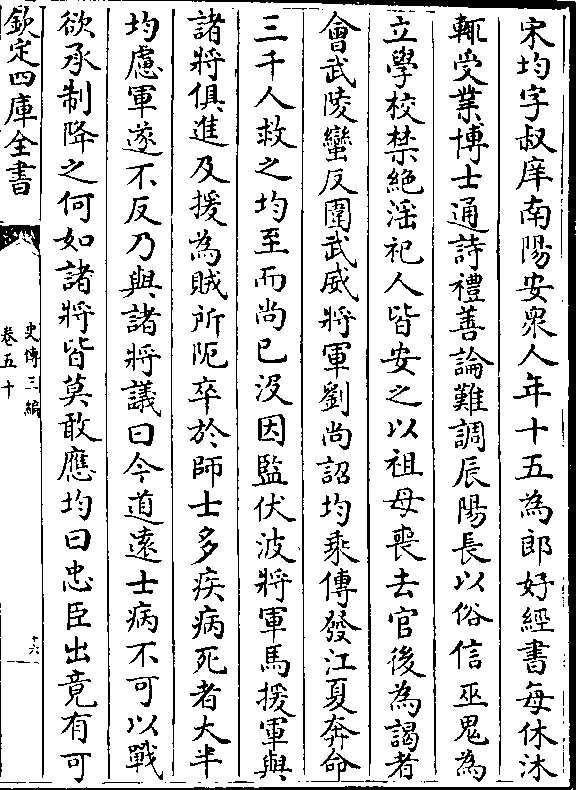 宋均字叔庠南陽安衆人年十五為郎好經書每休沐
輒受業博士通詩禮善論難調辰陽長以俗信巫鬼為
立學校禁絶淫祀人皆安之以祖母喪去官後為謁者
會武陵蠻反圍武威將軍劉尚詔均乘傳發江夏奔命
三千人救之均至而尚已没因監伏波將軍馬援軍與
諸將俱進及援為賊所阨卒於師士多疾病死者大半
均慮軍遂不反乃與諸將議曰今道遠士病不可以戰
欲承制降之何如諸將皆莫敢應均曰忠臣出竟有可
欽定四庫全書
史傳三編
卷五十
十六